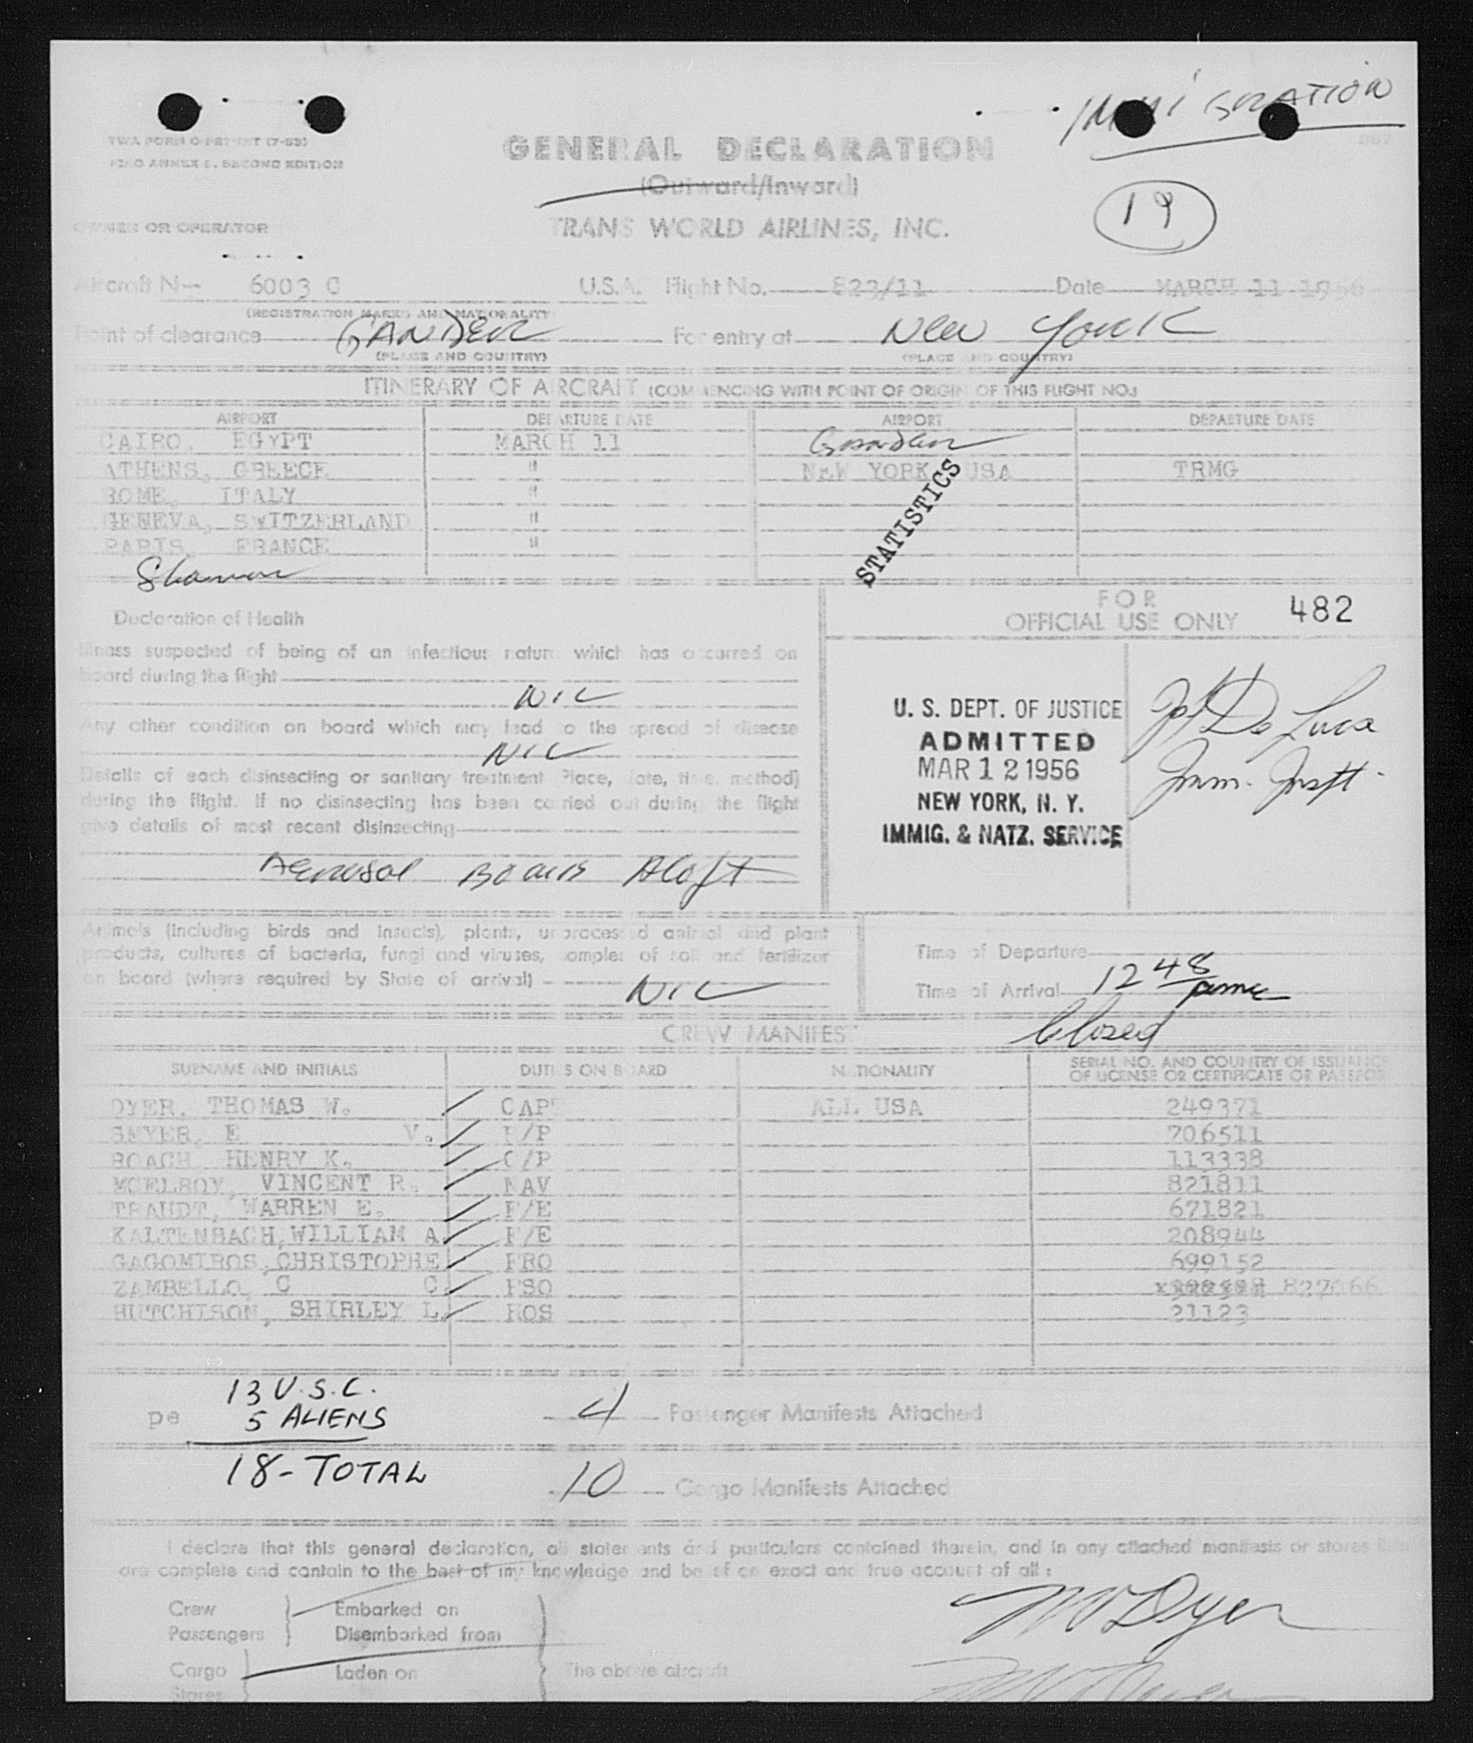 IMMIGRATION
TWA FORM
ICAO ANNEX 9, SECOND EDITION
GENERAL DECLARATION
(Outward/Inward)
19
OWNER OR OPERATOR
TRANS WORLD AIRLINES, INC.
Aircraft N— 6003 C U.S.A. Flight No. 823/11 Date MARCH 11 1956
(REGISTRATION MARKS AND NATIONALITY)
Point of clearance GANDER For entry at New York
(PLACE AND COUNTRY) (PLACE AND COUNTRY)
ITINERARY OF AIRCRAFT (COMMENCING WITH POINT OF ORIGIN OF THIS FLIGHT NO.)
AIRPORT DEPARTURE DATE AIRPORT DEPARTURE DATE
CAIRO, EGYPT MARCH 11 Gander
ATHENS, GREECE " NEW YORK, USA TRMG
ROME, ITALY "
GENEVA, SWITZERLAND "
PARIS, FRANCE "
Shannon
STATISTICS
Declaration of Health
FOR
OFFICIAL USE ONLY 482
Illness suspected of being of an infectious nature which has occurred on
board during the flight
NIL
Any other condition on board which may lead to the spread of disease
NIL
Details of each disinsecting or sanitary treatment (Place, date, time, method)
during the flight. If no disinsecting has been carried out during the flight
give details of most recent disinsecting
Aerosol Bombs Aloft
U. S. DEPT. OF JUSTICE
ADMITTED
MAR 12 1956
NEW YORK, N. Y.
IMMIG. & NATZ. SERVICE
De Luca
Imm. Inspt.
Animals (including birds and insects), plants, unprocessed animal and plant
products, cultures of bacteria, fungi and viruses, samples of soil and fertilizer
on board (where required by State of arrival) - NIL
Time of Departure
Time of Arrival 12 48
Closed
CREW MANIFEST
SURNAME AND INITIALS DUTIES ON BOARD NATIONALITY SERIAL NO. AND COUNTRY OF ISSUANCE
OF LICENSE OR CERTIFICATE OR PASSPORT
DYER, THOMAS W. CAPT ALL USA 249371
SMYER, E V. P/P 706511
ROACH HENRY K. C/P 113338
MCELROY, VINCENT R. NAV 821811
TRAUDT, WARREN E. F/E 671821
KALTENBACH, WILLIAM A F/E 208944
GAGOMIROS, CHRISTOPHE PRO 699152
ZAMBELLO, C C FSO 827066
HUTCHISON, SHIRLEY L. HOS 21123
13 U.S.C.
pe 5 ALIENS
4 Passenger Manifests Attached
18 - TOTAL
10 Cargo Manifests Attached
I declare that this general declaration, all statements and particulars contained therein, and in any attached manifests or stores
are complete and contain to the best of my knowledge and belief an exact and true account of all:
Crew Embarked on
Passengers Disembarked from
TW Dyer
Cargo Laden on The above aircraft
Stores